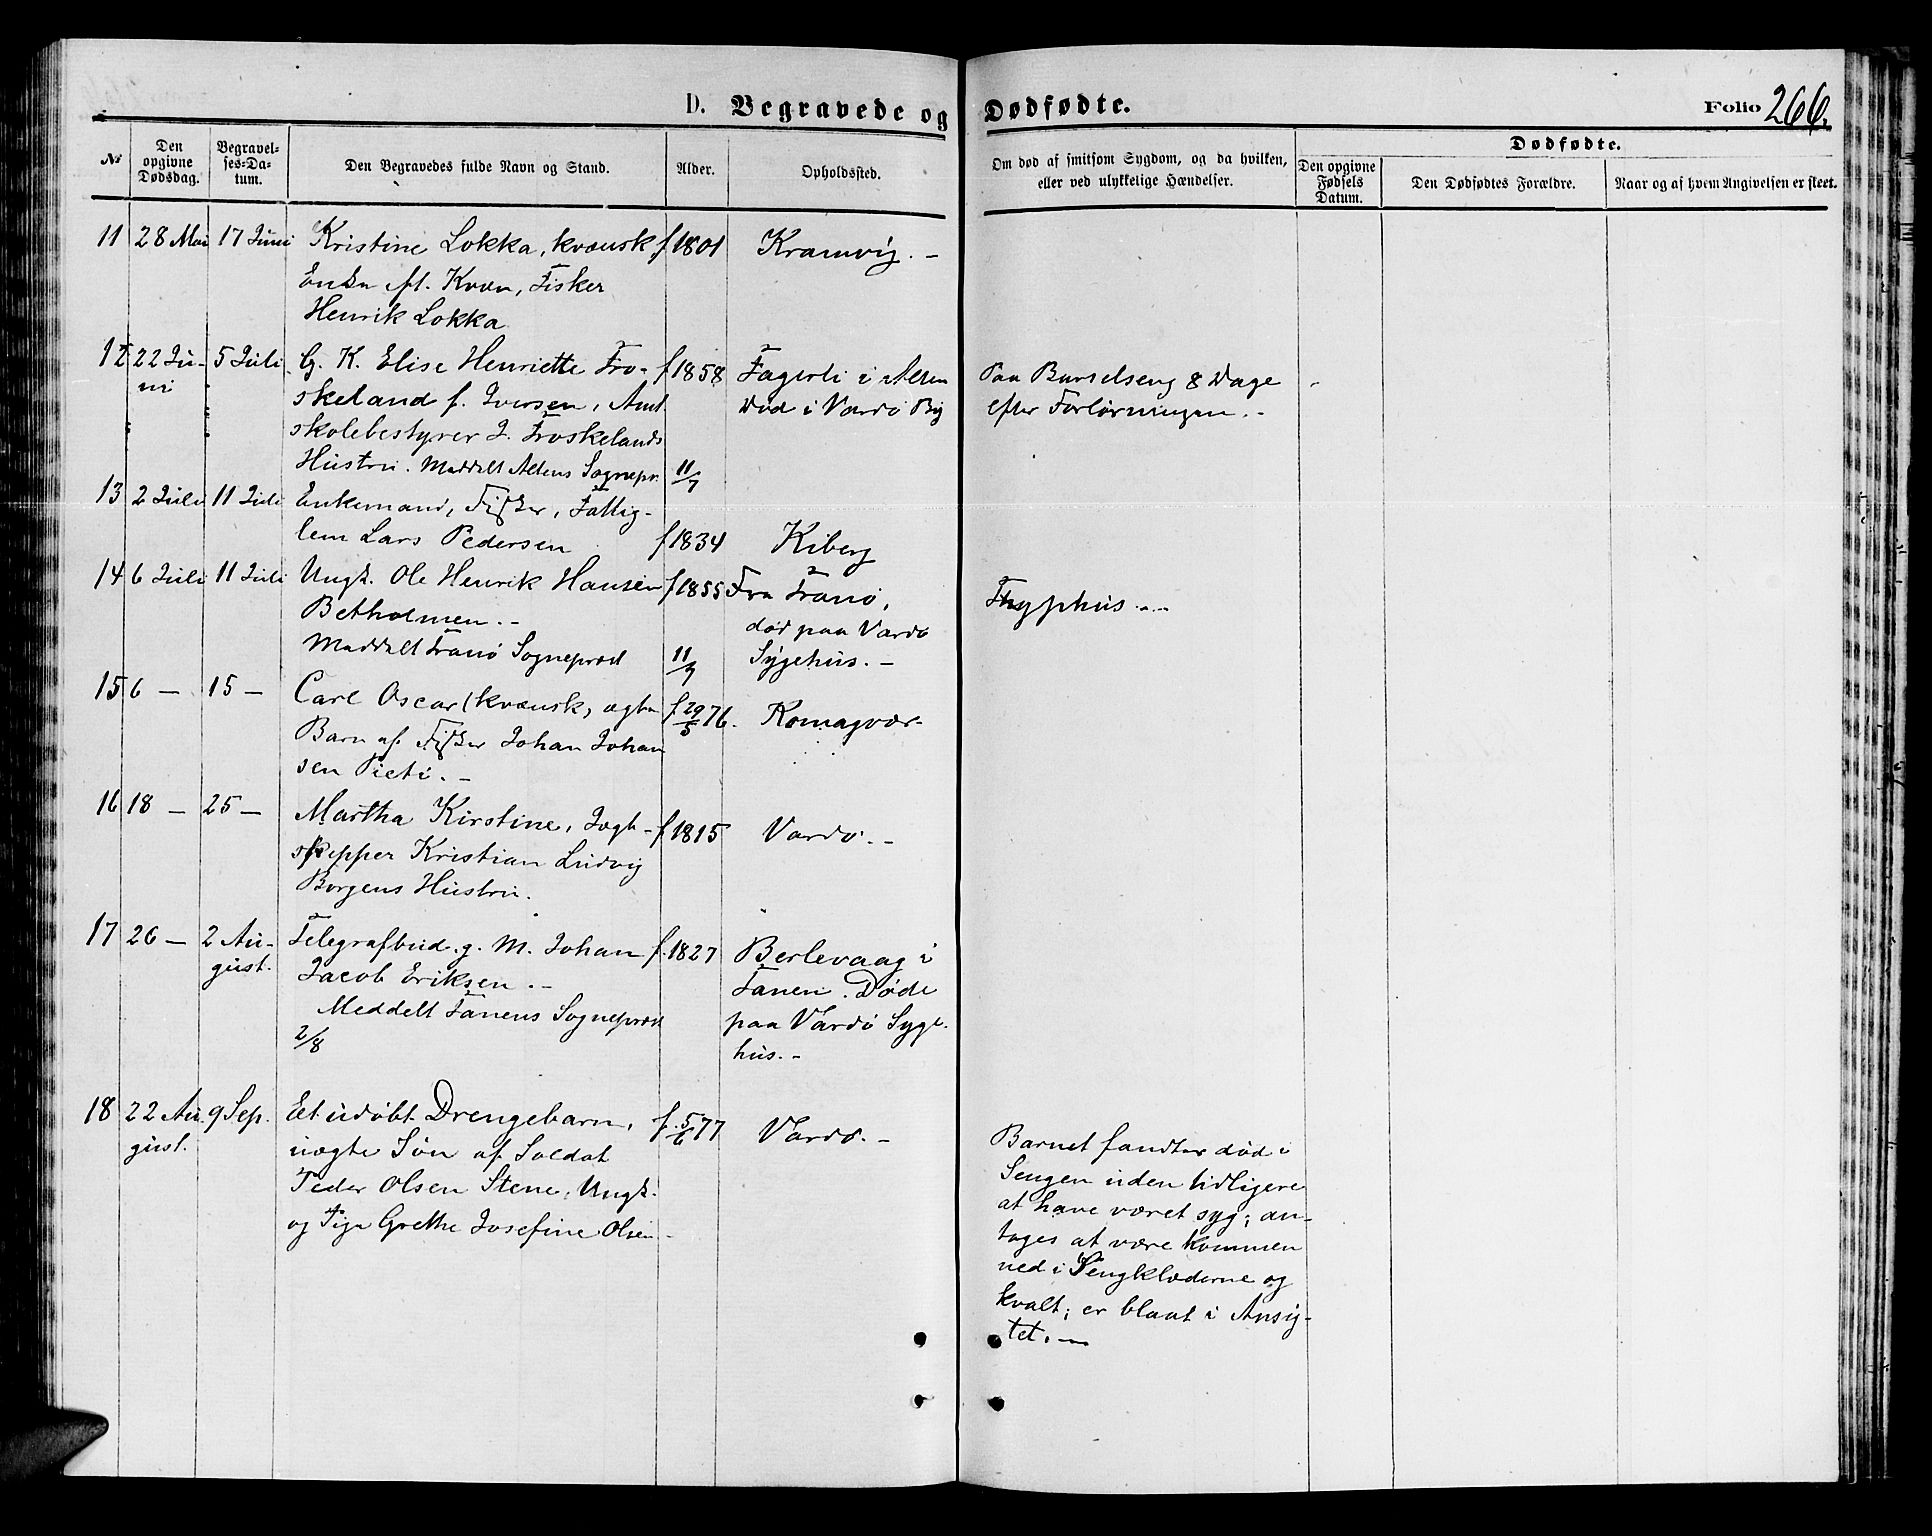 D. Begravede og Dødfødte.
Folio 266.
No
Den opgivne Dødsdag.
Begravelses-Datum.
Den Begravedes fulde Navn og Stand.
Alder.
Opholdssted.
Om død af smitsom Sygdom, og da hvilken,
eller ved ulykkelige Hændelser.
Dødfødte.
Den opgivne Fødsels Datum.
Den Dødfødtes Forældre.
Naar og af hvem Angivelsen er skeet.
11 28 Mai 17 Juni Kristine Lokka, kvænsk f 1801 Kramvig. -
Enke eft. Kvæn, Fisker
Henrik Lokka
12 22 Ju- 5 Juli G. K. Elise Henriette Fro- f 1858 Fagerli i Alten Paa Barselseng 8 Dage
ni skeland f. Iversen, Amt Død i Vardø By efter Forløsningen. -
skolebestyrer J. Froskelands
Hustru. Meddelt Altens Sognepr. 11/7
13 2 Juli 11 Juli Enkemand, Fisker, Fattig-
lem Lars Pedersen f 1834 Kiberg
14 6 Juli 11 Juli Ungk. Ole Henrik Hansen f 1855 Fra Tranø, Thyphus. -
Betholmen. - død paa Vardø
Meddelt Tranø Sogneprest 11/7 Sygehus. -
15 6 - 15 - Carl Oscar (kvænsk) ægte f 29/5 76. Komagvær-
Barn af Fisker Johan Johan
sen Pieti. -
16 18 - 25 - Martha Kirstine, Jægt- f 1815 Vardø. -
skipper Kristian Ludvig
Borgens Hustru.
17 26 - 2 Au- Telegrafbud g. M. Johan f. 1827 Berlevaag i
gust. Jacob Eriksen. - Tanen. Døde
Meddelt Tanens Sogneprest paa Vardø Syge-
2/8 hus. -
18 22 Au- 9 Sep. Et udøbt Drengebarn, f. 5/6 77 Vardø. - Barnet fandtes død i
gust. uægte Søn af Soldat Sengen uden tidligere
Peder Olsen Stene, Ungk. at have været syg; an-
og Pige Grethe Josefine Olsen - tages at være kommen
ned i Sengklæderne og
kvalt; er blaat i Ansig-
tet. -